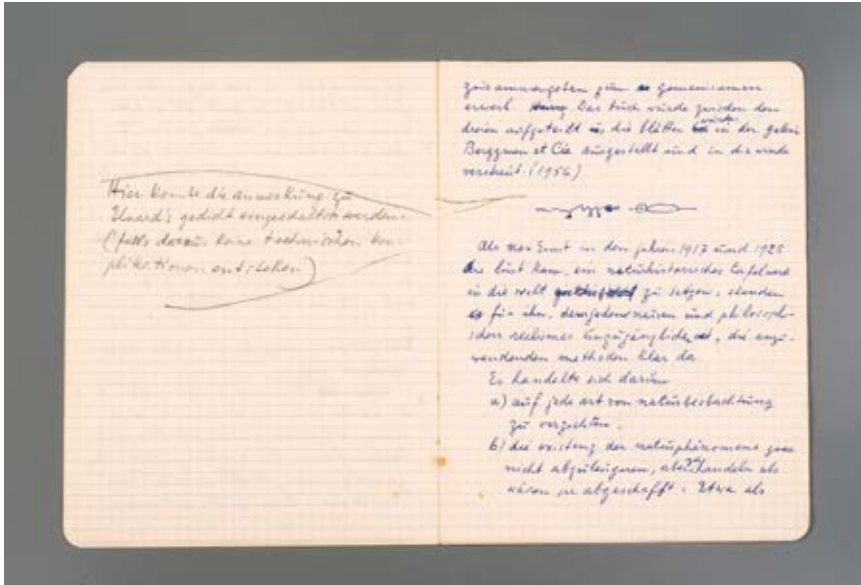 Hier könnte die anmerkung zu
Eluard's gedicht eingeschaltet werden.
(falls daraus keine technischen kom-
plikationen entstehen)
zusammengeben zum gemeinsamen
erwerb. Das buch wurde zwischen den
dreien aufgeteilt die blätter wurden in der galerie
Berggruen et Cie ausgestellt und in die winde
verstreut. (1956)
Als Max Ernst in den jahren 1917 und 1925
die lust kam, ein naturhistorisches tafelwerk
in die welt zu setzen, standen
für ihn, den jedem naiven und philosoph-
ischen realismus unzugänglich ist, die anzu-
wendenden methoden klar da
Es handelte sich darum
a) auf jede art von naturbeobachtung
zu verzichten.
b) die existenz der naturphänomene zwar
nicht abzuleugnen, aber zu handeln als
wären sie abgeschafft. Etwa als